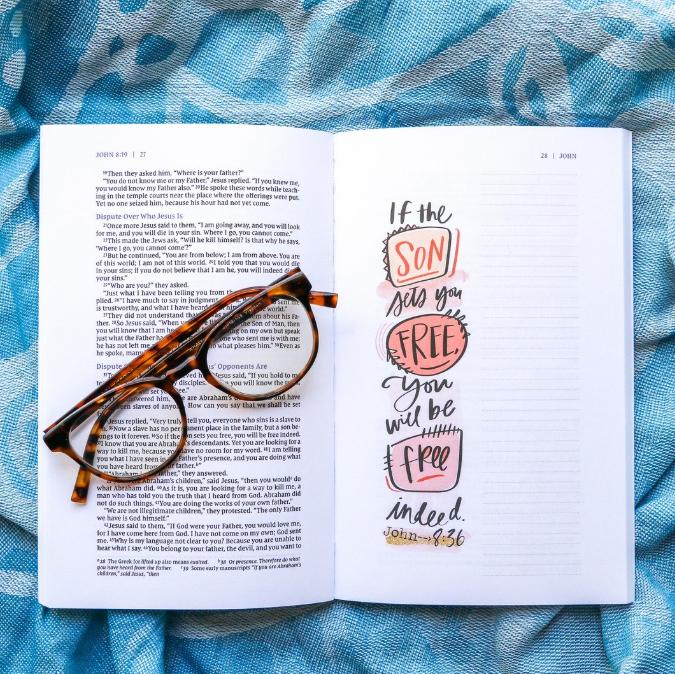 JOHN 8:19 | 27
19Then they asked him, "Where is your father?"
"You do not know me or my Father," Jesus replied. "If you knew me,
you would know my Father also." 20He spoke these words while teach-
ing in the temple courts near the place where the offerings were put.
Yet no one seized him, because his hour had not yet come.
Dispute Over Who Jesus Is
21Once more Jesus said to them, "I am going away, and you will look
for me, and you will die in your sin. Where I go, you cannot come."
22This made the Jews ask, "Will he kill himself? Is that why he says,
'Where I go, you cannot come'?"
23But he continued, "You are from below; I am from above. You are
of this world; I am not of this world. 24I told you that you would die
in your sins; if you do not believe that I am he, you will indeed die
your sins."
25"Who are you?" they asked.
"Just what I have been telling you from the
plied. 26"I have much to say in judgment sent me
is trustworthy, and what I have heard world."
27They did not understand that them about his Fa-
ther. 28So Jesus said, "When the Son of Man, then
you will know that I am on my own but speak
just what the Father has who sent me is with me;
he has not left me what pleases him." 30Even as
he spoke, many
Dispute Opponents Are
Jesus said, "If you hold to
disciples. you will know the
set you
answered him, are Abraham's and have
been slaves of anyone. How can you say that we shall be set
Jesus replied, "Very truly tell you, everyone who sins is a slave to
Now a slave has no permanent place in the family, but a son be-
longs to it forever. So if the sets you free, you will be free indeed.
I know that you are Abraham's descendants. Yet you are looking for a
way to kill me, because you have no room I am telling
you what I have seen in Father's presence, and you are doing what
you have heard from your father."
"Abraham is our father," they answered.
Abraham's children," said Jesus, "then you would
what Abraham did. 40As it is, you are looking for a way to kill me, a
man who has told you the truth that I heard from God. Abraham did
not do such things. 41You are doing the works of your own father."
"We are not illegitimate children," they protested. "The only Father
we have is God himself."
42Jesus said to them, "If God were your Father, you would love me,
for I have come here from God. I have not come on my own; God sent
me. 43Why is my language not clear to you? Because you are unable to
hear what I say. 44You belong to your father, the devil, and you want to
a28 The Greek for lifted up also means exalted. b38 Or presence. Therefore do what
you have heard from the Father. c39 Some early manuscripts "If you are Abraham's
children," said Jesus, "then
28 | JOHN
If the
SON
sets you
FREE,
you
will be
FREE
indeed.
John→8:36